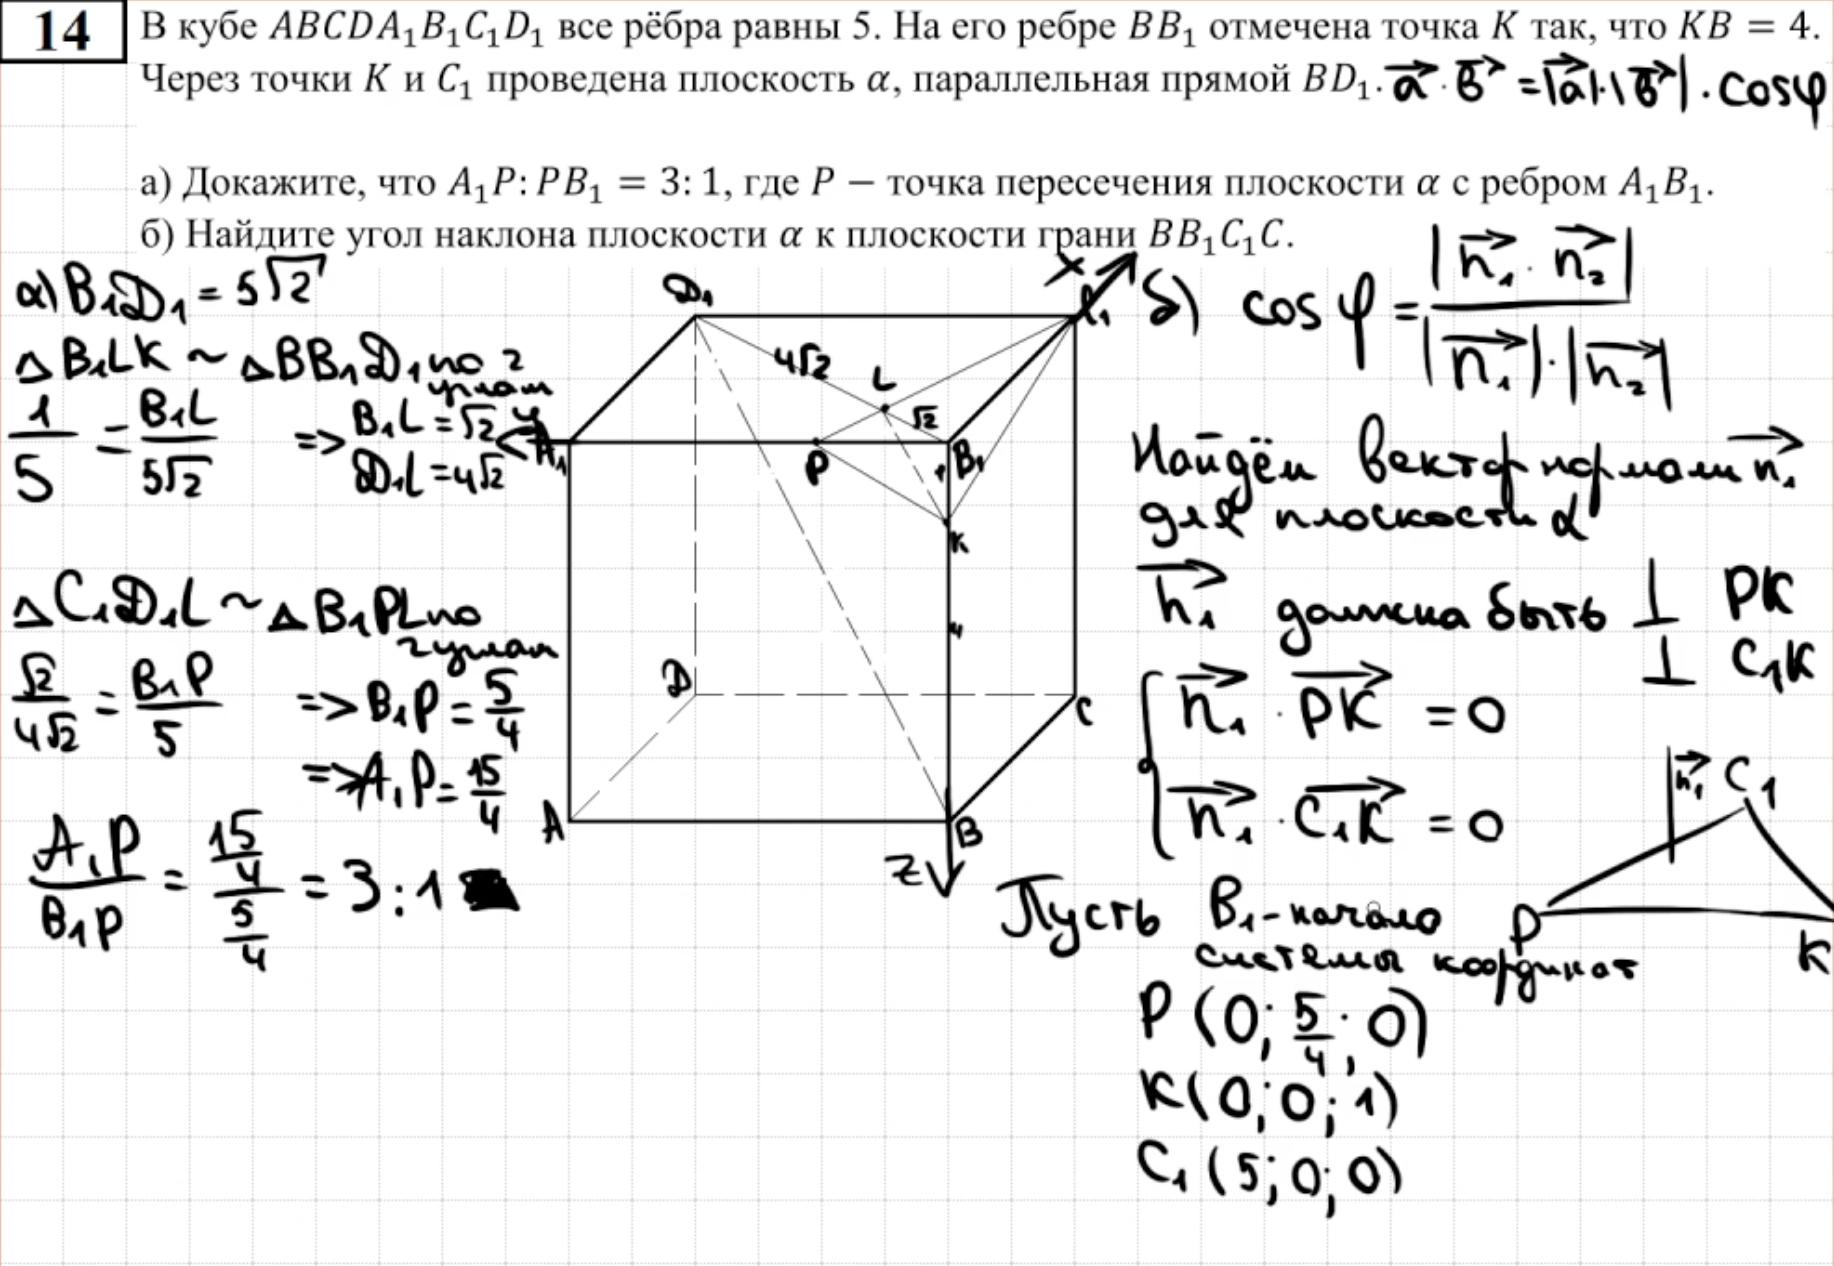 14
В кубе ABCDA₁B₁C₁D₁ все рёбра равны 5. На его ребре BB₁ отмечена точка K так, что KB = 4.
Через точки K и C₁ проведена плоскость α, параллельная прямой BD₁. a⃗ · b⃗ = |a⃗|·|b⃗| · cosφ
а) Докажите, что A₁P: PB₁ = 3: 1, где P – точка пересечения плоскости α с ребром A₁B₁.
б) Найдите угол наклона плоскости α к плоскости грани BB₁C₁C.
а) B₁D₁ = 5√2
△B₁LK ~ △BB₁D₁ по 2 углам
1/5 = B₁L/5√2 => B₁L = √2
D₁L = 4√2
△C₁D₁L ~ △B₁PL по 2 углам
√2/4√2 = B₁P/5 => B₁P = 5/4
=> A₁P = 15/4
A₁P/B₁P = (15/4)/(5/4) = 3:1
D₁
C₁
x
4√2
L
√2
y
A₁
P
B₁
1
K
4
D
C
A
B
z
б) cos φ = |n₁⃗ · n₂⃗| / |n₁⃗| · |n₂⃗|
Найдём вектор нормали n₁⃗
для плоскости α
n₁⃗ должна быть ⊥ PK
⊥ C₁K
{ n₁⃗ · PK⃗ = 0
n₁⃗ · C₁K⃗ = 0
n₁⃗
C₁
P
K
Пусть B₁-начало
системы координат
P (0; 5/4; 0)
K (0; 0; 1)
C₁ (5; 0; 0)